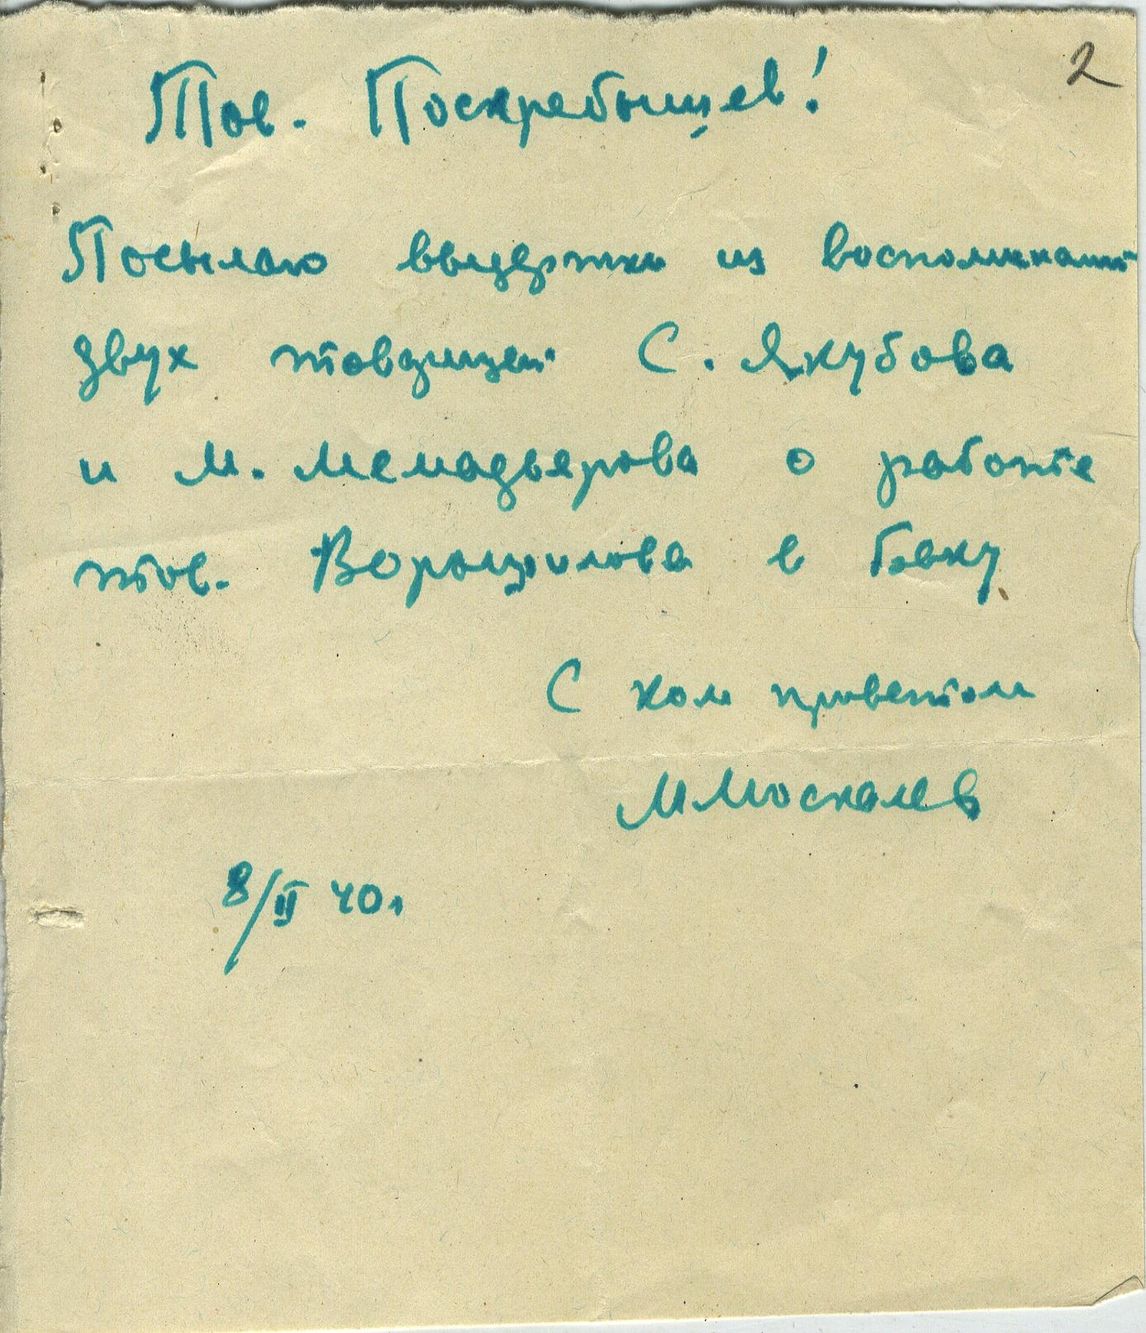 2
Тов. Поскребышев!
Посылаю выдержки из воспоминаний
двух товарищей С. Якубова
и М. Мемадьярова о работе
тов. Ворошилова в Баку
С ком приветом
М Москалев
8/II 40 г.